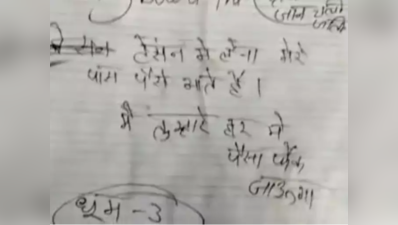 जॉन
टेंसन मे लेना मेरे
पास पैसे आते हैं ।
मै तुम्हारे घर मे
पैसा फेंक
जाउंगा
धूम - 3